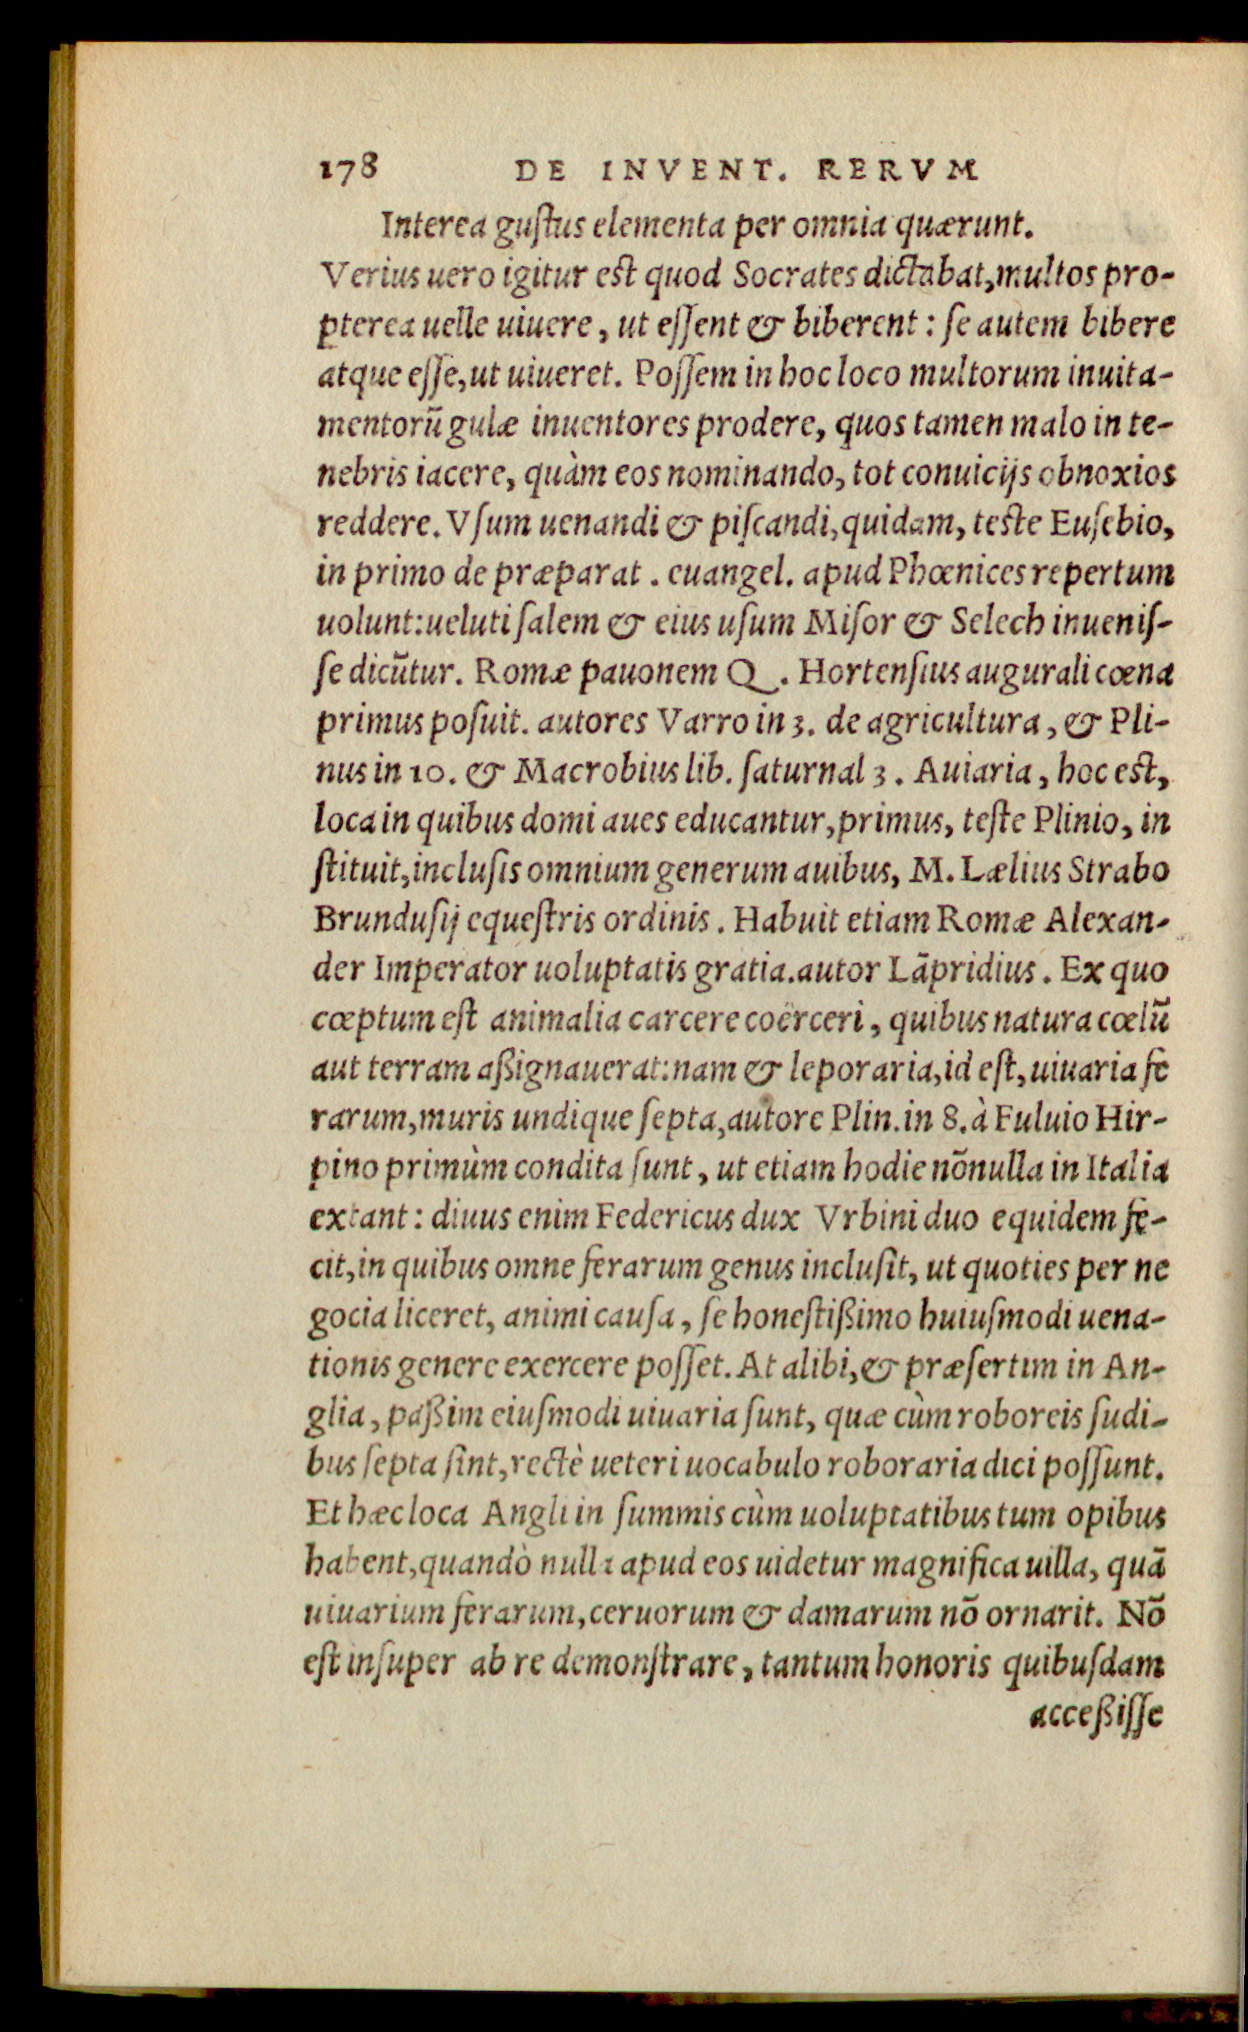 178 DE INVENT. RERVM
Interea guſtus elementa per omnia quærunt.
Verius uero igitur eſt quod Socrates dictabat, multos pro-
pterea uelle uiuere, ut eſſent & biberent: ſe autem bibere
atque eſſe, ut uiueret. Poſſem in hoc loco multorum inuita-
mentorũ gulæ inuentores prodere, quos tamen malo in te-
nebris iacere, quàm eos nominando, tot conuicijs obnoxios
reddere. Vſum uenandi & piſcandi, quidam, teſte Euſebio,
in primo de præparat. euangel. apud Phœnices repertum
uolunt: ueluti ſalem & eius uſum Miſor & Selech inueniſ-
ſe dicũtur. Romæ pauonem Q. Hortenſius augurali cœna
primus poſuit. autores Varro in 3. de agricultura, & Pli-
nus in 10. & Macrobius lib. ſaturnal 3. Auiaria, hoc eſt,
loca in quibus domi aues educantur, primus, teſte Plinio, in
ſtituit, incluſis omnium generum auibus, M. Lælius Strabo
Brunduſij equeſtris ordinis. Habuit etiam Romæ Alexan-
der Imperator uoluptatis gratia. autor Lãpridius. Ex quo
cœptum eſt animalia carcere coërceri, quibus natura cœlũ
aut terram aßignauerat: nam & leporaria, id eſt, uiuaria fe
rarum, muris undique ſepta, autore Plin. in 8. à Fuluio Hir-
pino primùm condita ſunt, ut etiam hodie nõnulla in Italia
extant: diuus enim Federicus dux Vrbini duo equidem fe-
cit, in quibus omne ferarum genus incluſit, ut quoties per ne
gocia liceret, animi cauſa, ſe honeſtißimo huiuſmodi uena-
tionis genere exercere poſſet. At alibi, & præſertim in An-
glia, paßim eiuſmodi uiuaria ſunt, quæ cùm roboreis ſudi-
bus ſepta ſint, rectè ueteri uocabulo roboraria dici poſſunt.
Et hæc loca Angli in ſummis cùm uoluptatibus tum opibus
habent, quandò nulla apud eos uidetur magnifica uilla, quã
uiuarium ferarum, ceruorum & damarum nõ ornarit. Nõ
eſt inſuper ab re demonſtrare, tantum honoris quibuſdam
acceßiſſe